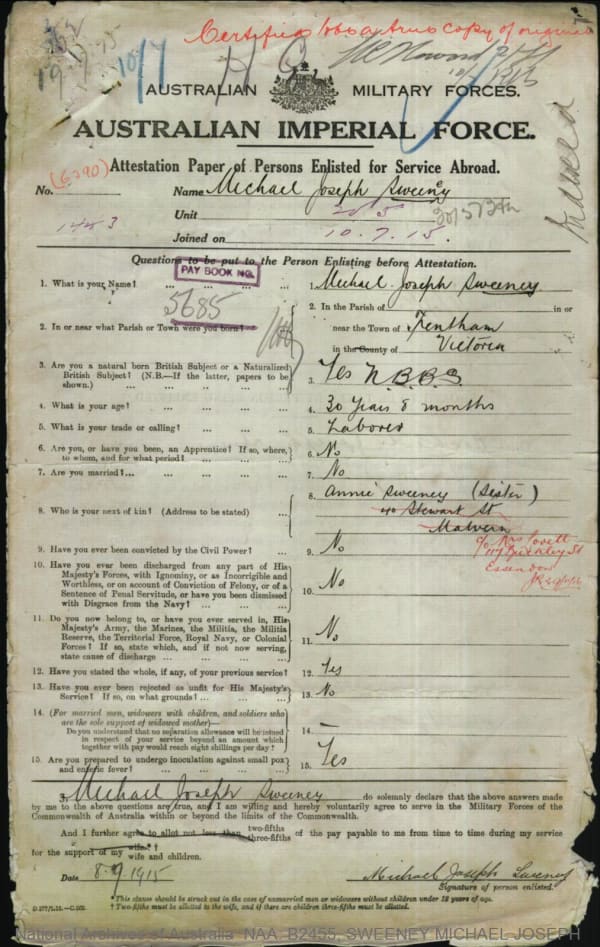 Certified to be a true copy of original
19.7.15
10/7
H Q
AUSTRALIAN MILITARY FORCES.
AUSTRALIAN IMPERIAL FORCE.
Attestation Paper of Persons Enlisted for Service Abroad.
(6290)
No. Name Michael Joseph Sweeney
Unit
Joined on 10.7.15.
Questions to be put to the Person Enlisting before Attestation.
PAY BOOK NO.
5685
1. What is your Name? ... ... ... ... 1. Michael Joseph Sweeney
2. In or near what Parish or Town were you born? ... 2. In the Parish of in or
near the Town of Fentham
in the County of Victoria
3. Are you a natural born British Subject or a Naturalized
British Subject? (N.B.—If the latter, papers to be
shown.) ... ... ... ... 3. Yes N.B.B.S.
4. What is your age? ... ... ... ... 4. 30 Years 8 months
5. What is your trade or calling? ... ... ... 5. Laborer
6. Are you, or have you been, an Apprentice? If so, where,
to whom, and for what period? ... ... ... 6. No
7. Are you married? ... ... ... ... 7. No
8. Who is your next of kin? (Address to be stated) ... 8. Annie Sweeney (Sister)
40 Stewart St
Malvern
c/o Mrs Lovett
Buckley St
Essendon
9. Have you ever been convicted by the Civil Power? ... 9. No
10. Have you ever been discharged from any part of His
Majesty's Forces, with Ignominy, or as Incorrigible and
Worthless, or on account of Conviction of Felony, or of a
Sentence of Penal Servitude, or have you been dismissed
with Disgrace from the Navy? ... ... ... 10. No
11. Do you now belong to, or have you ever served in, His
Majesty's Army, the Marines, the Militia, the Militia
Reserve, the Territorial Force, Royal Navy, or Colonial
Forces? If so, state which, and if not now serving,
state cause of discharge ... ... ... 11. No
12. Have you stated the whole, if any, of your previous service? 12. Yes
13. Have you ever been rejected as unfit for His Majesty's
Service? If so, on what grounds? ... ... ... 13. No
14. (For married men, widowers with children, and soldiers who
are the sole support of widowed mother)—
Do you understand that no separation allowance will be issued
in respect of your service beyond an amount which
together with pay would reach eight shillings per day? 14. —
15. Are you prepared to undergo inoculation against small pox
and enteric fever? ... ... ... ... 15. Yes
I, Michael Joseph Sweeney do solemnly declare that the above answers made
by me to the above questions are true, and I am willing and hereby voluntarily agree to serve in the Military Forces of the
Commonwealth of Australia within or beyond the limits of the Commonwealth.
And I further agree to allot not less than two-fifths
three-fifths of the pay payable to me from time to time during my service
for the support of my wife.
wife and children.
Date 8.7.1915 Michael Joseph Sweeney
Signature of person enlisted.
* This clause should be struck out in the case of unmarried men or widowers without children under 18 years of age.
† Two-fifths must be allotted to the wife, and if there are children three-fifths must be allotted.
National Archives of Australia NAA: B2455, SWEENEY MICHAEL JOSEPH